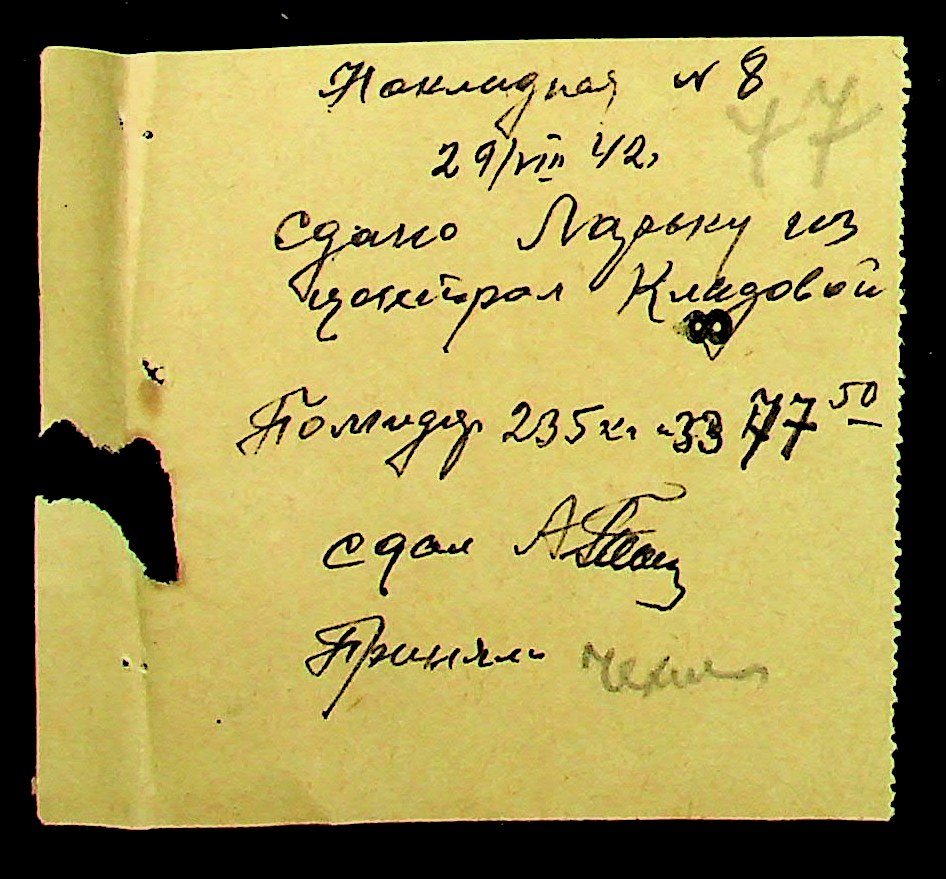 Накладная № 8
47
29/VIII 42г
Сдано Ларьку из
централ Кладовой
8
Помидор 235 кг 33 77 50
сдал А
Принял